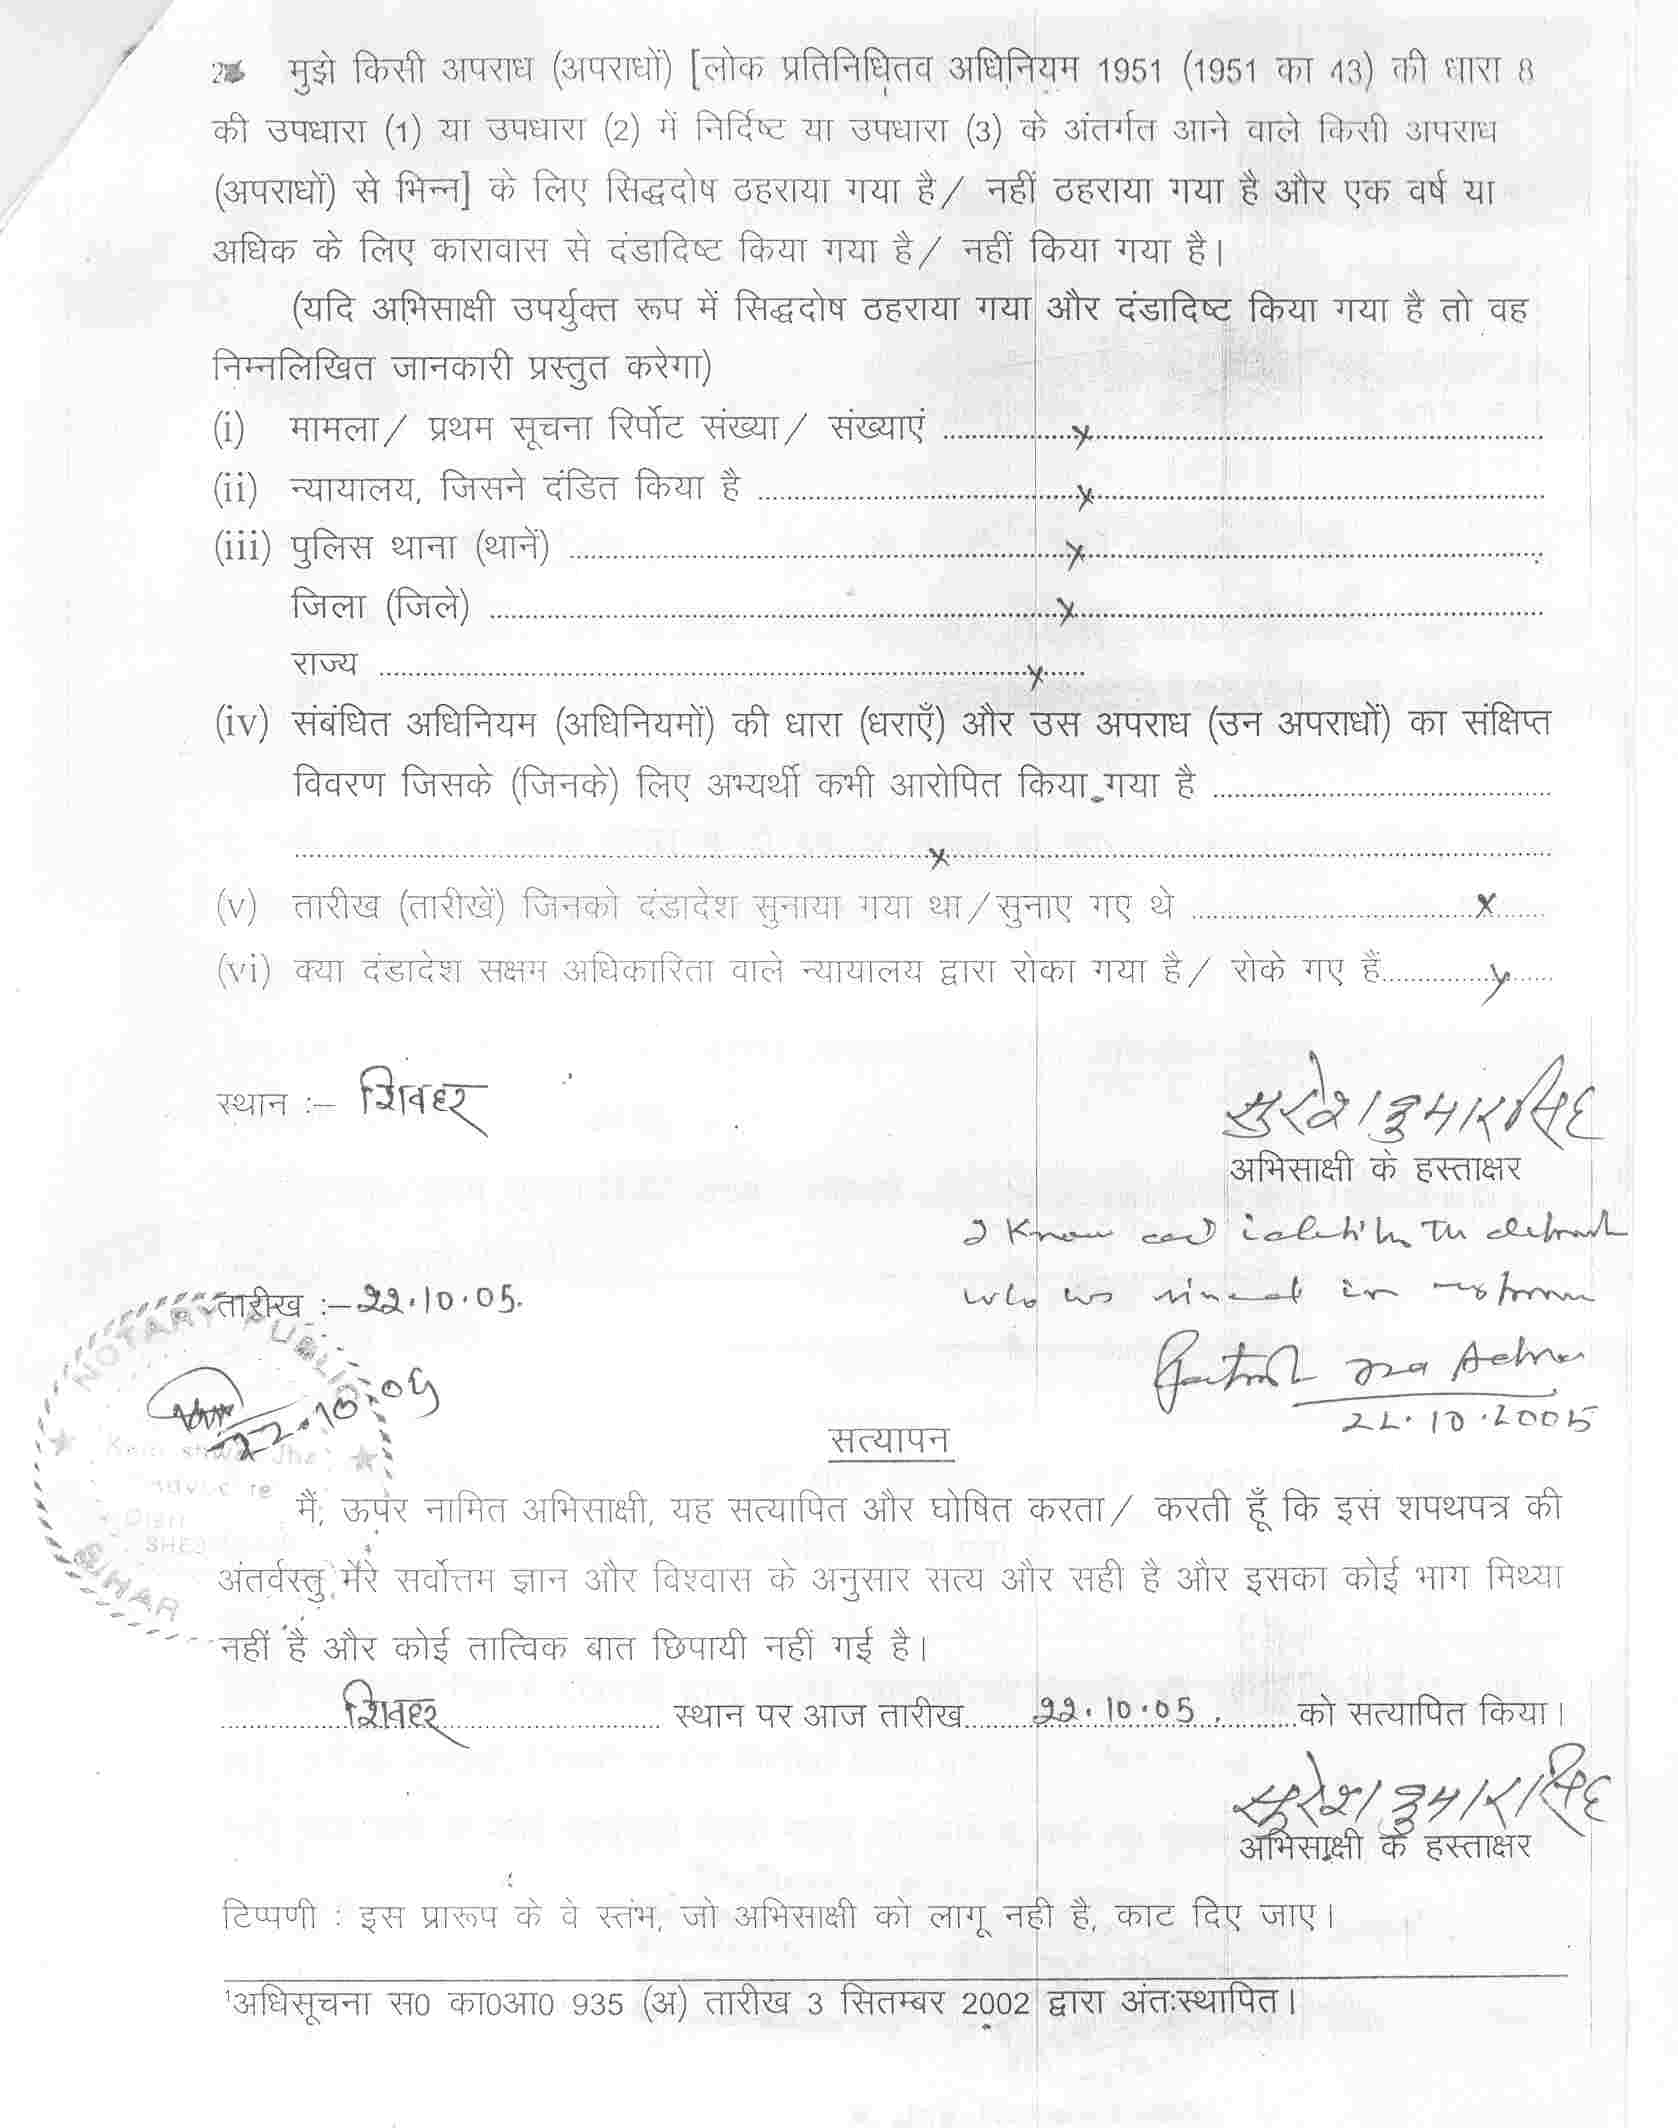 2 मुझे किसी अपराध (अपराधों) [लोक प्रतिनिधितव अधिनियम 1951 (1951 का 43) की धारा 8
की उपधारा (1) या उपधारा (2) में निर्दिष्ट या उपधारा (3) के अंतर्गत आने वाले किसी अपराध
(अपराधों) से भिन्न] के लिए सिद्धदोष ठहराया गया है/ नहीं ठहराया गया है और एक वर्ष या
अधिक के लिए कारावास से दंडादिष्ट किया गया है/ नहीं किया गया है।
(यदि अभिसाक्षी उपर्युक्त रूप में सिद्धदोष ठहराया गया और दंडादिष्ट किया गया है तो वह
निम्नलिखित जानकारी प्रस्तुत करेगा)
(i) मामला/ प्रथम सूचना रिर्पोट संख्या/ संख्याएं ........ x ........
(ii) न्यायालय, जिसने दंडित किया है ........ x ........
(iii) पुलिस थाना (थानें) ........ x ........
जिला (जिले) ........ x ........
राज्य ........ x ........
(iv) संबंधित अधिनियम (अधिनियमों) की धारा (धराएँ) और उस अपराध (उन अपराधों) का संक्षिप्त
विवरण जिसके (जिनके) लिए अभ्यर्थी कभी आरोपित किया गया है ........
........ x ........
(v) तारीख (तारीखें) जिनको दंडादेश सुनाया गया था/सुनाए गए थे ........ x ........
(vi) क्या दंडादेश सक्षम अधिकारिता वाले न्यायालय द्वारा रोका गया है/ रोके गए हैं ........ x ........
स्थान :– शिवहर
सुरेश कुमार सिंह
अभिसाक्षी के हस्ताक्षर
I Know and
who
तारीख :– 22.10.05.
NOTARY PUBLIC
22.10.05
22.10.2005
सत्यापन
Jha
BIHAR
मैं, ऊपर नामित अभिसाक्षी, यह सत्यापित और घोषित करता/ करती हूँ कि इस शपथपत्र की
अंतर्वस्तु मेरे सर्वोत्तम ज्ञान और विश्वास के अनुसार सत्य और सही है और इसका कोई भाग मिथ्या
नहीं है और कोई तात्विक बात छिपायी नहीं गई है।
........ शिवहर ........ स्थान पर आज तारीख ........ 22.10.05. ........ को सत्यापित किया।
सुरेश कुमार सिंह
अभिसाक्षी के हस्ताक्षर
टिप्पणी : इस प्रारूप के वे स्तंभ, जो अभिसाक्षी को लागू नही है, काट दिए जाए।
¹अधिसूचना स0 का0आ0 935 (अ) तारीख 3 सितम्बर 2002 द्वारा अंतःस्थापित।